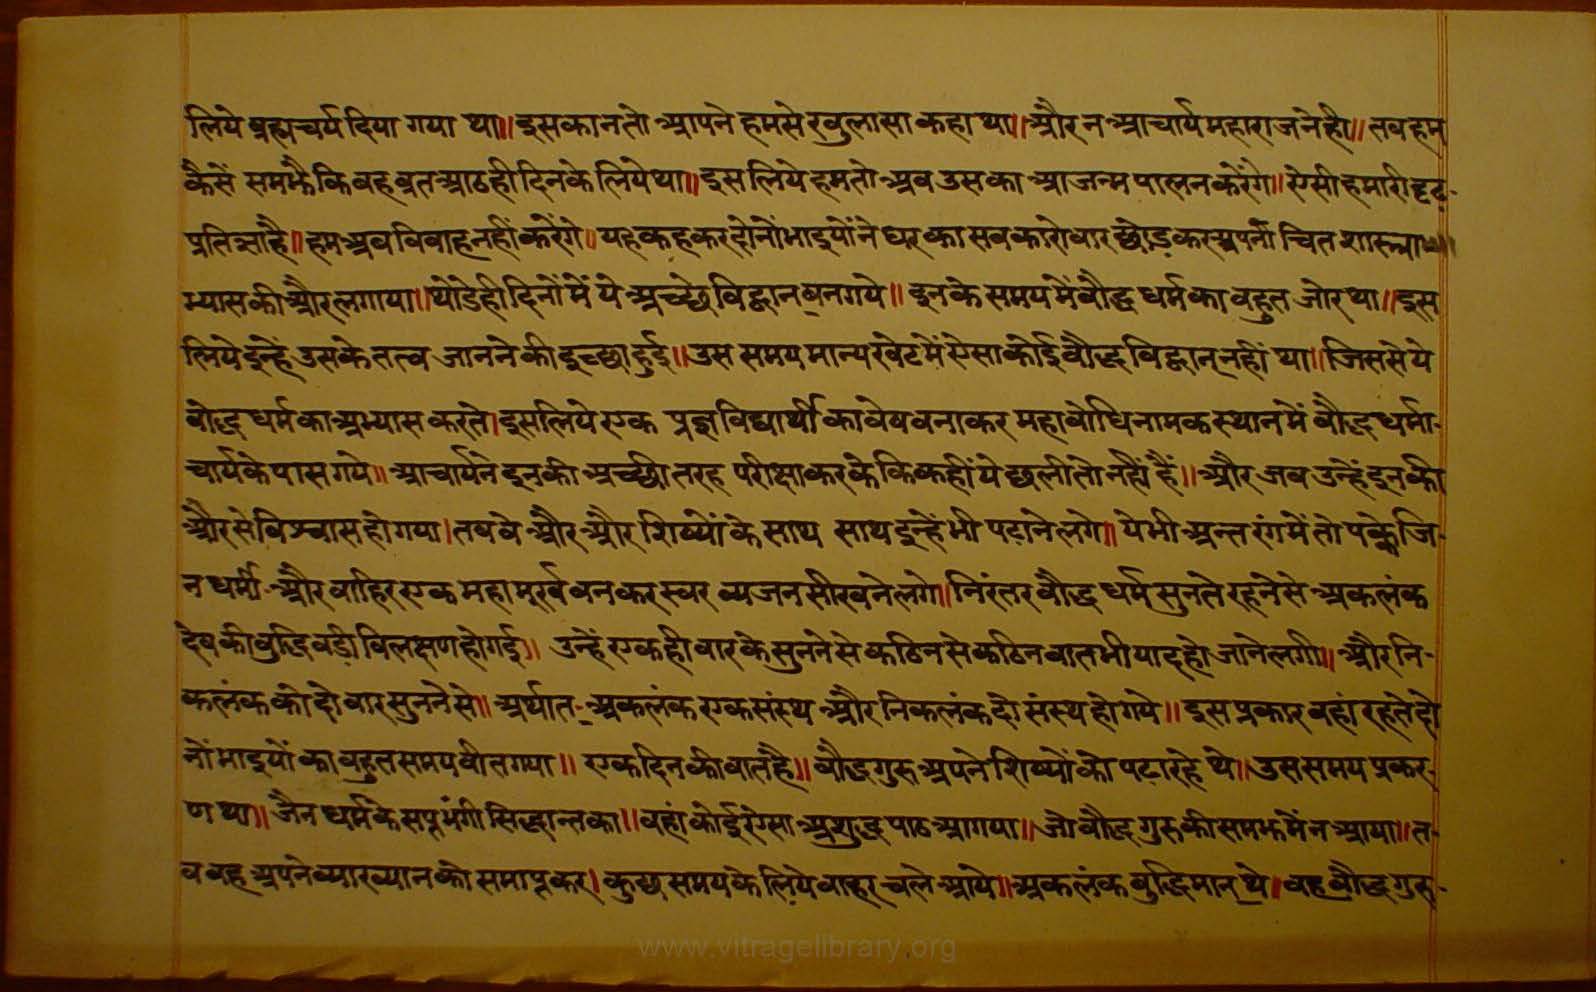 लिये ब्रह्मचर्य दिया गया था॥ इसका न तो आपने हमसे खुलासा कहा था॥ और न आचार्य महाराजने ही॥ तव हम
कैसें समझै कि वह व्रत आठ ही दिनके लिये था॥ इस लिये हमतो अव उसका आजन्म पालन करेंगे॥ ऐसी हमारी दृढ़-
प्रतिज्ञा है॥ हम अव विवाह नहीं करेंगे॥ यह कह कर दोनों भाइयोंने घर का सव कारोवार छोड़कर अपना चित शास्त्रा-
भ्यास की और लगाया॥ थोडेही दिनों में ये अच्छे विद्वान वन गये॥ इनके समय में वौद्ध धर्म का वहुत जोर था॥ इस
लिये इन्हें उसके तत्व जानने की इच्छा हुई॥ उस समय मान्यखेट में ऐसा कोई वौद्ध विद्वान् नहीं था॥ जिससे ये
वोद्ध धर्म का अभ्यास करते। इसलिये एक प्रज्ञ विद्यार्थी का वेष वनाकर महावोधि नामक स्थान में वौद्ध धर्मा-
चार्य के पास गये॥ आचार्यने इनकी अच्छी तरह परीक्षा करके कि कहीं ये छली तो नहीं हैं॥ और जव उन्हें इनकी
और से विश्वास हो गया। तव वे और और शिष्यों के साथ साथ इन्हें भी पढ़ाने लगे॥ ये भी अन्तरंग में तो पक्के जि-
न धर्मी और वाहिर एक महामूर्ख वनकर स्वर व्यजन सीखने लगे॥ निरंतर वौद्ध धर्म सुनते रहने से अकलंक
देव की वुद्धि वडी विलक्षण हो गई॥ उन्हें एक ही वार के सुनने से कठिन से कठिन वात भी याद हो जाने लगी॥ और नि-
कलंक को दो वार सुनने से॥ अर्थात- अकलंक एक संस्थ और निकलंक दो संस्थ हो गये॥ इस प्रकार वहां रहते दो
नों भाइयों का वहुत समय वीत गया॥ एक दिन की वात है॥ वौद्ध गुरु अपने शिष्यों को पढा रहे थे॥ उस समय प्रकर-
ण था॥ जैन धर्म के सप्तभंगी सिद्धान्त का॥ वहां कोई ऐसा अशुद्ध पाठ आगया॥ जो वौद्ध गुरु की समझ में न आया॥ त-
व वह अपने व्याख्यान को समाप्त कर। कुछ समय के लिये वाहर चले आये॥ अकलंक वुद्धिमान् थे॥ वह वौद्ध गुरु-
www.vitragelibrary.org